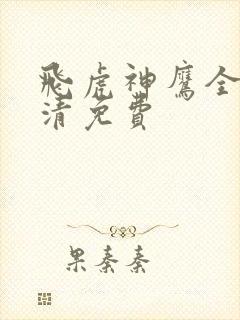 飛虎神鷹全
清免費
果秦秦